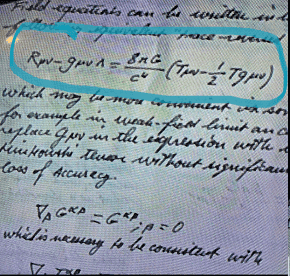 Field equations can be written in
equivalent trace-
Rμν - gμν Λ = 8πG/c⁴ (Tμν - 1/2 Tgμν)
which may be more convenient in
for example in weak-field limit an
replace gμν in the expression with
Minkowski tensor without significan
loss of accuracy.
∇β G^αβ = G^αβ ;β = 0
which is necessary to be consistent with